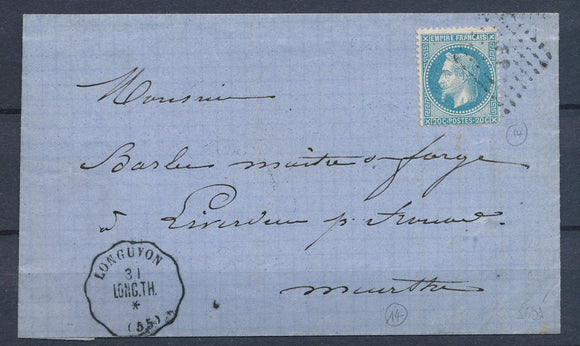 EMPIRE FRANÇAIS
20C POSTES 20C
Monsieur
14
Barbe maitre de forge
à Liverdun p. Frouard
Meurthe
LONGUYON
31
LONG.TH.
*
(55)
14